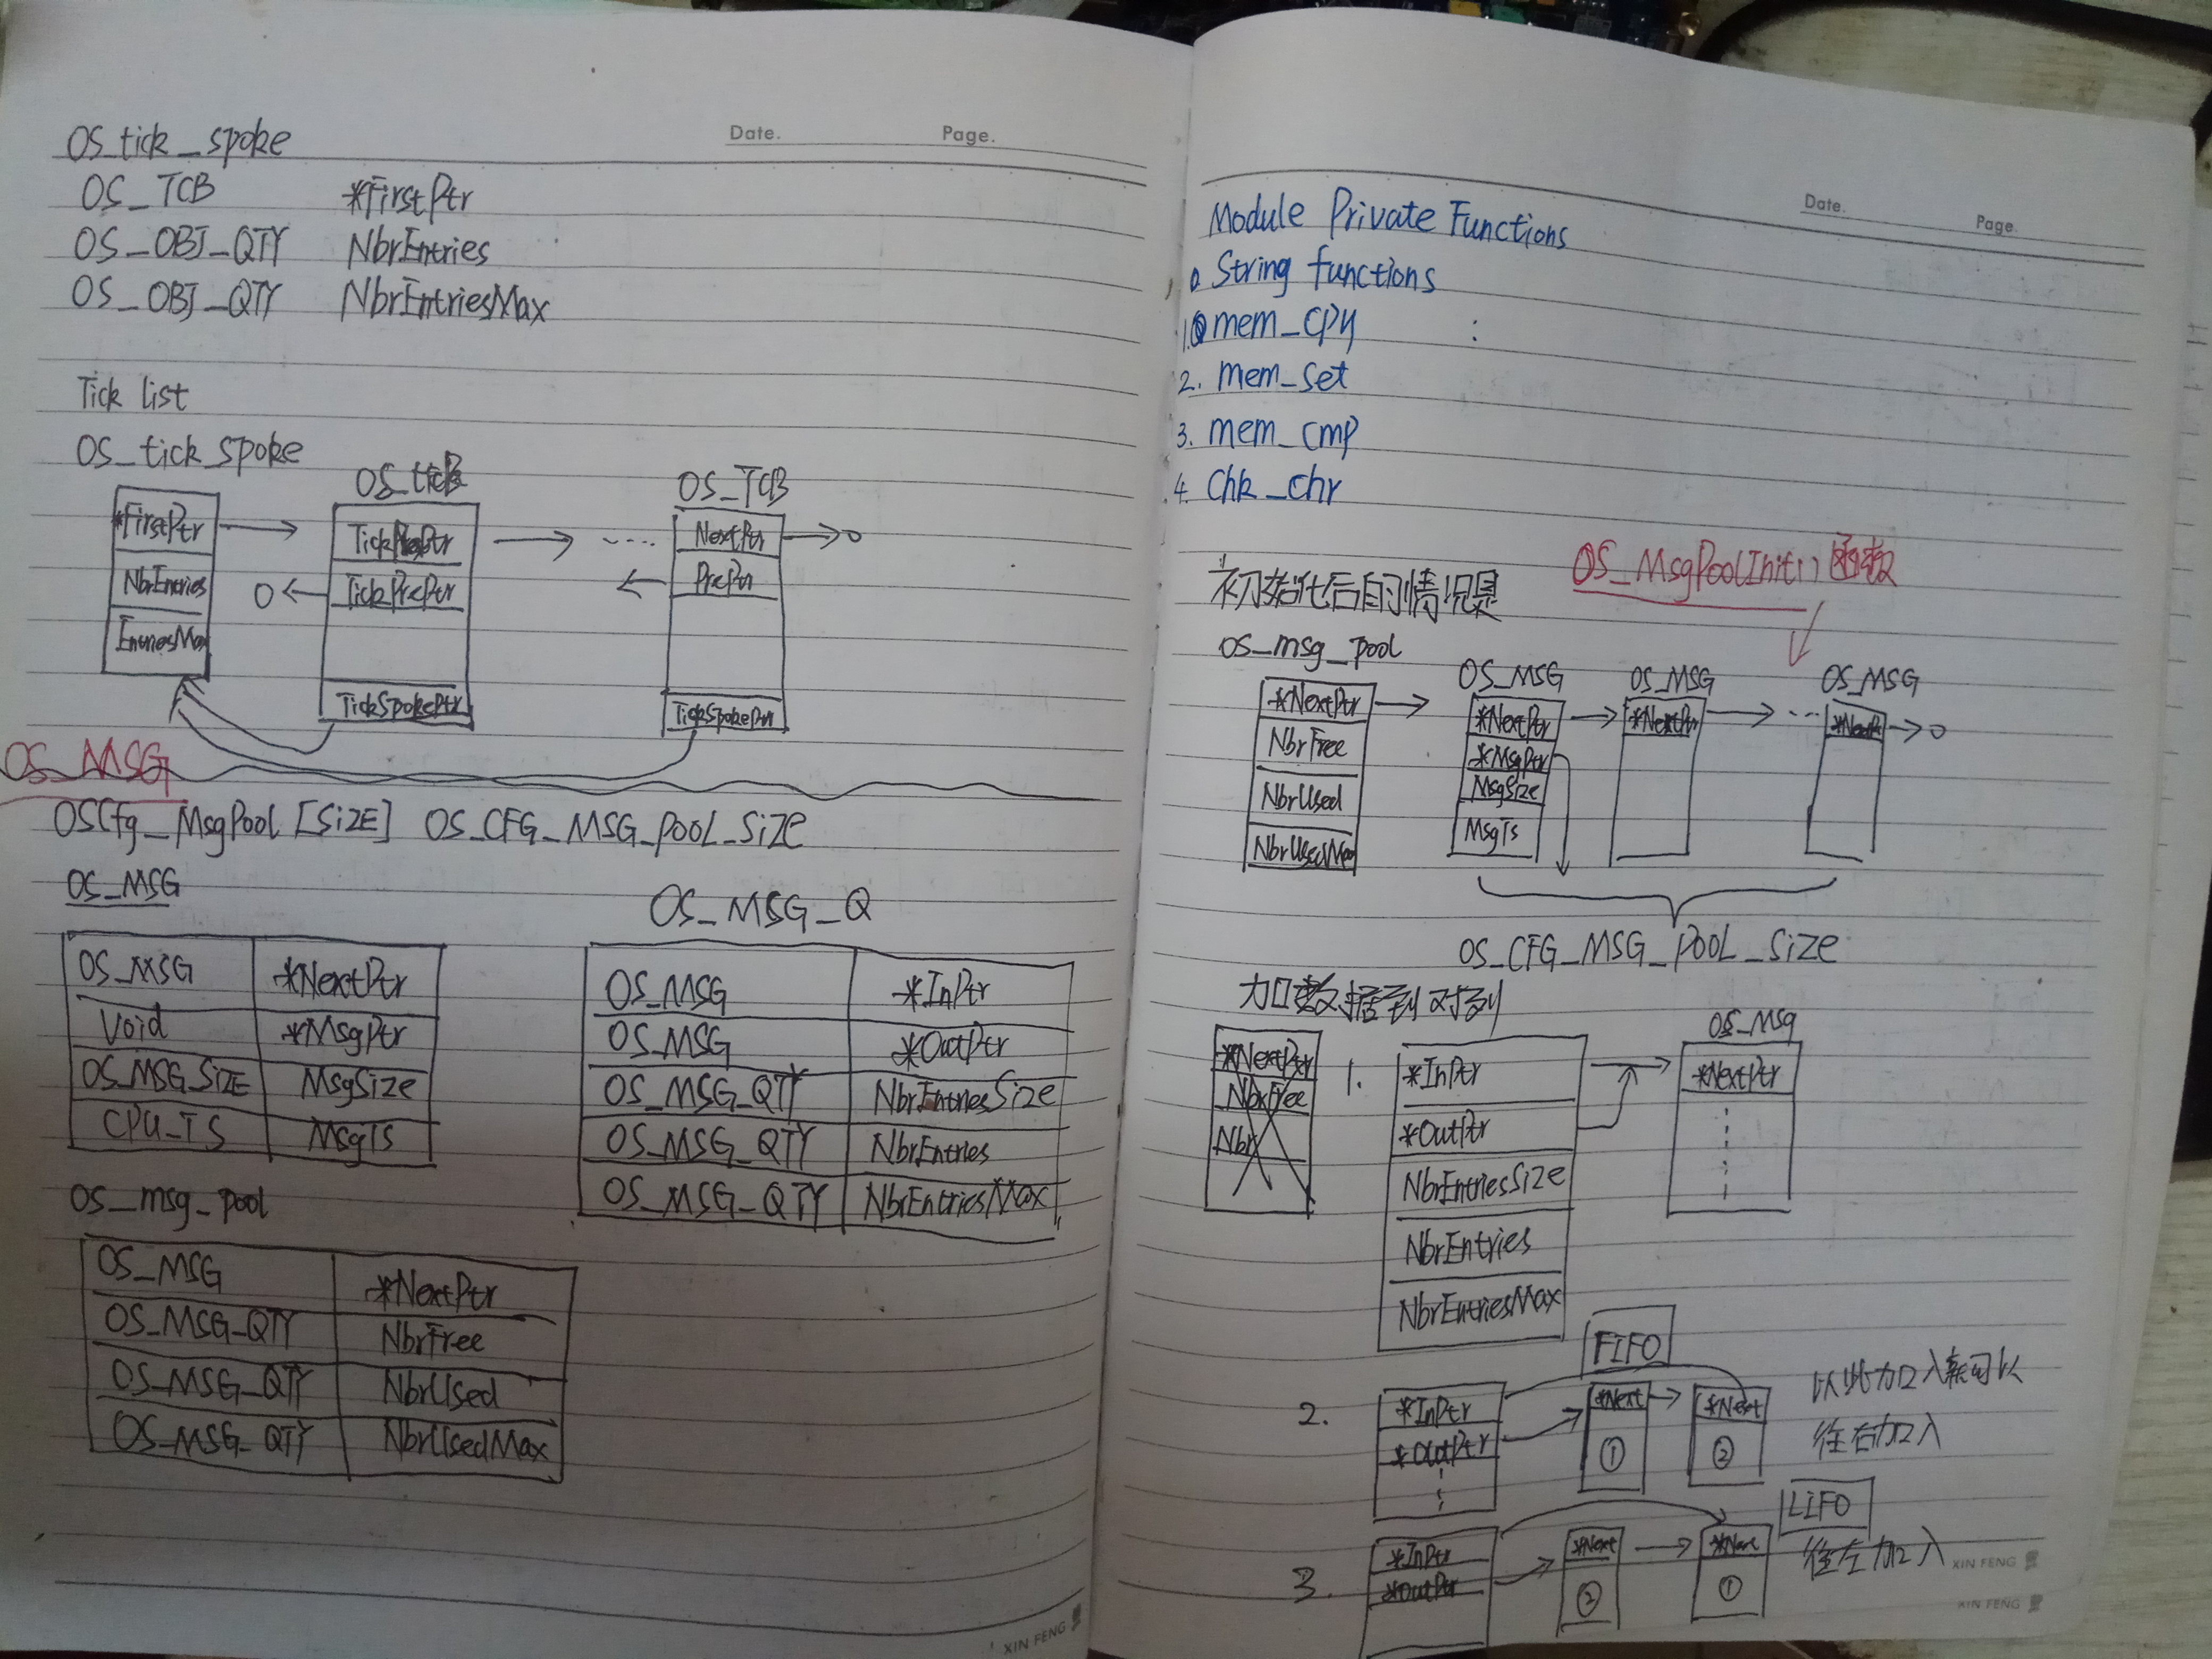 Date. Page.
OS_tick_spoke
OS_TCB *FirstPtr
OS_OBJ_QTY NbrEntries
OS_OBJ_QTY NbrEntriesMax
Tick list
OS_tick_spoke
OS_TCB
*FirstPtr
NbrEntries
EntriesMax
TickPrePtr
TickSpokePtr
OS_TCB
NextPtr
PrePtr
TickSpokePtr
0
0
OS_MSG
OSCfg_MsgPool [SIZE] OS_CFG_MSG_POOL_SIZE
OS_MSG
OS_MSG *NextPtr
Void *MsgPtr
OS_MSG_SIZE MsgSize
CPU_TS MsgTS
OS_MSG_Q
OS_MSG *InPtr
OS_MSG *OutPtr
OS_MSG_QTY NbrEntriesSize
OS_MSG_QTY NbrEntries
OS_MSG_QTY NbrEntriesMax
OS_msg_pool
OS_MSG *NextPtr
OS_MSG_QTY NbrFree
OS_MSG_QTY NbrUsed
OS_MSG_QTY NbrUsedMax
XIN FENG
Date. Page.
Module Private Functions
String functions
1. mem_cpy :
2. mem_set
3. mem_cmp
4. Chk_chr
OS_MsgPoolInit() 函数
初始化后的情况是
OS_msg_pool
*NextPtr
NbrFree
NbrUsed
NbrUsedMax
OS_MSG
*NextPtr
*MsgPtr
MsgSize
MsgTs
OS_MSG
*NextPtr
OS_MSG
*NextPtr
0
OS_CFG_MSG_POOL_SIZE
加数据到对列
*NextPtr
NbrFree
Nbr
1.
*InPtr
*OutPtr
NbrEntriesSize
NbrEntries
NbrEntriesMax
OS_Msg
*NextPtr
FIFO
2.
*InPtr
*OutPtr
*Next
①
*Next
②
以此加入新可以
往右加入
LIFO
3.
*InPtr
*OutPtr
*Next
②
*Nex
①
往左加入
XIN FENG
XIN FENG